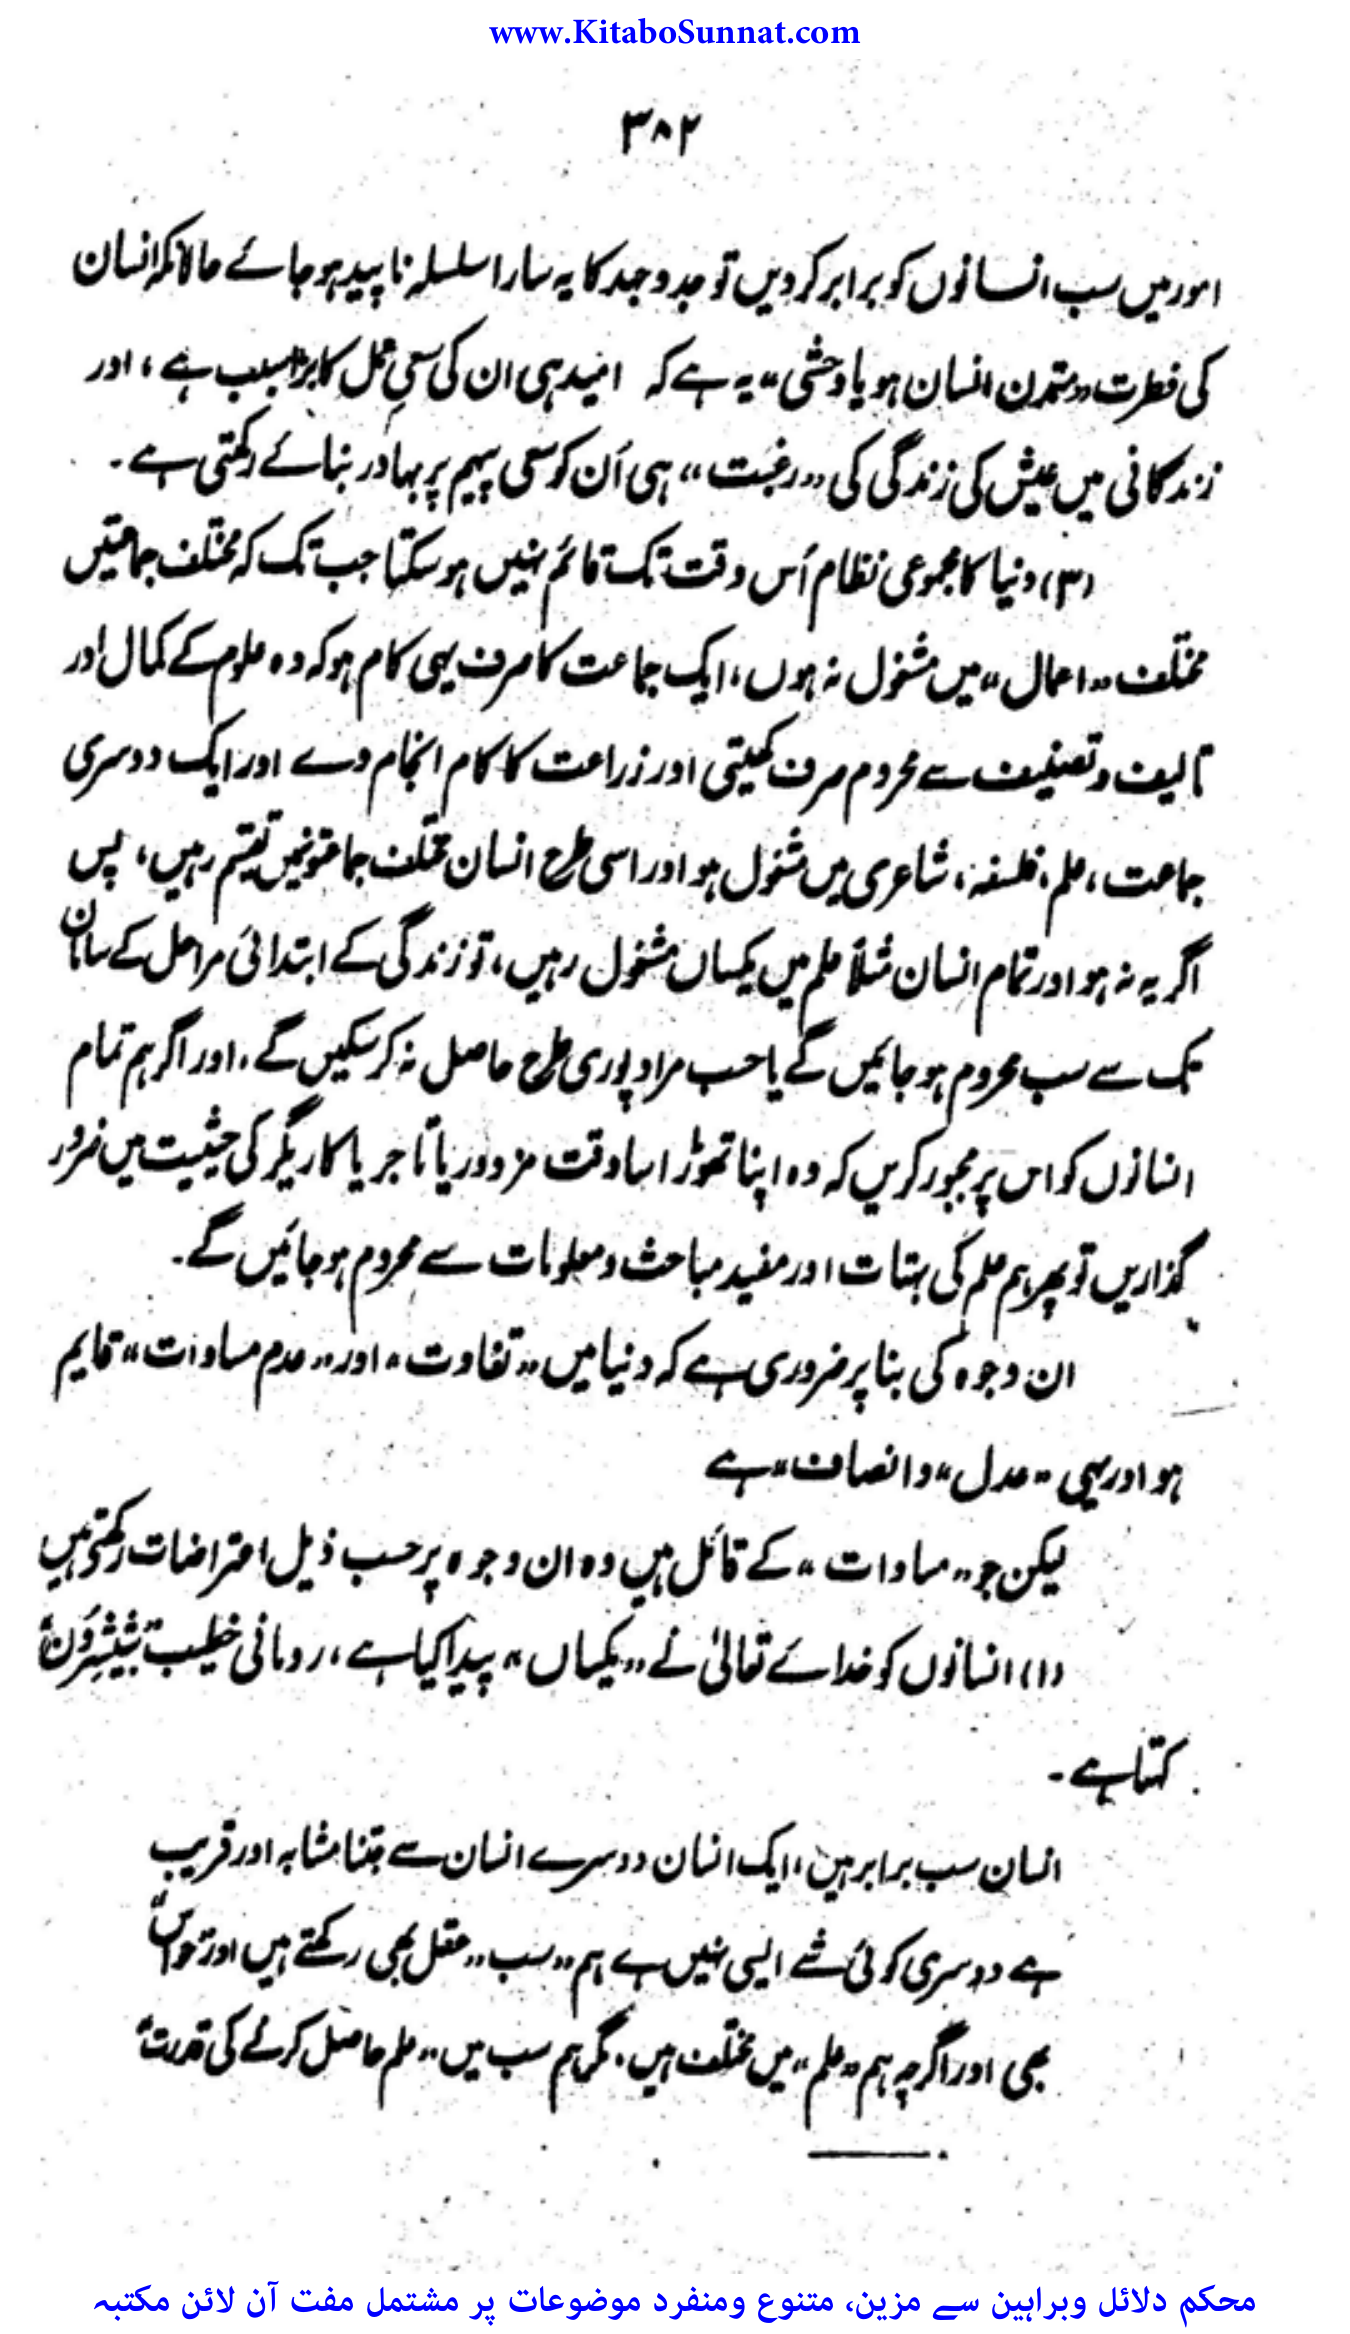 www.KitaboSunnat.com
۳۸۲
امور میں سب انسانوں کو برابر کردیں تو جدوجہد کا یہ سارا سلسلہ ناپید ہوجائے حالانکہ انسان
کی فطرت "متمدن انسان ہو یا وحشی" یہ ہے کہ امید ہی ان کی سعیِ عمل کا بڑا سبب ہے، اور
زندگانی میں عیش کی زندگی کی "رغبت" ہی اُن کو سعی پیہم پر بہادر بنائے رکھتی ہے۔
(۳) دنیا کا مجموعی نظام اُس وقت تک قائم نہیں ہوسکتا جب تک کہ مختلف جماعتیں
مختلف "اعمال" میں مشغول نہ ہوں، ایک جماعت کا صرف یہی کام ہو کہ وہ علوم کے کمال اور
تالیف وتصنیف سے محروم صرف کھیتی اور زراعت کا کام انجام دے اور ایک دوسری
جماعت، علم، فلسفہ، شاعری میں مشغول ہو اور اسی طرح انسان مختلف جماعتونمیں تقسیم رہیں، پس
اگر یہ نہ ہو اور تمام انسان مثلاً علم میں یکساں مشغول رہیں، تو زندگی کے ابتدائی مراحل کے سامان
تک سے سب محروم ہوجائیں گے یا حسب مراد پوری طرح حاصل نہ کرسکیں گے، اور اگر ہم تمام
انسانوں کو اس پر مجبور کریں کہ وہ اپنا تھوڑا سا وقت مزدور یا تاجر یا کاریگر کی حیثیت میں ضرور
گذاریں تو پھر ہم علم کی بہتات اور مفید مباحث ومعلومات سے محروم ہوجائیں گے۔
ان وجوہ کی بنا پر ضروری ہے کہ دنیا میں "تفاوت" اور "عدم مساوات" قایم
ہو اور یہی "عدل" و انصاف" ہے
لیکن جو "مساوات" کے قائل ہیں وہ ان وجوہ پر حسب ذیل اعتراضات رکھتے ہیں
(۱) انسانوں کو خدائے تعالیٰ نے "یکساں" پیدا کیا ہے، رومانی خطیب
کہتا ہے۔
انسان سب برابر ہیں، ایک انسان دوسرے انسان سے جتنا مشابہ اور قریب
ہے دوسری کوئی شے ایسی نہیں ہے ہم "سب" عقل بھی رکھتے ہیں اور حواس
بھی اور اگرچہ ہم "علم" میں مختلف ہیں۔ مگر ہم سب میں "علم حاصل کرنے کی قدرت"
محکم دلائل وبراہین سے مزین، متنوع ومنفرد موضوعات پر مشتمل مفت آن لائن مکتبہ